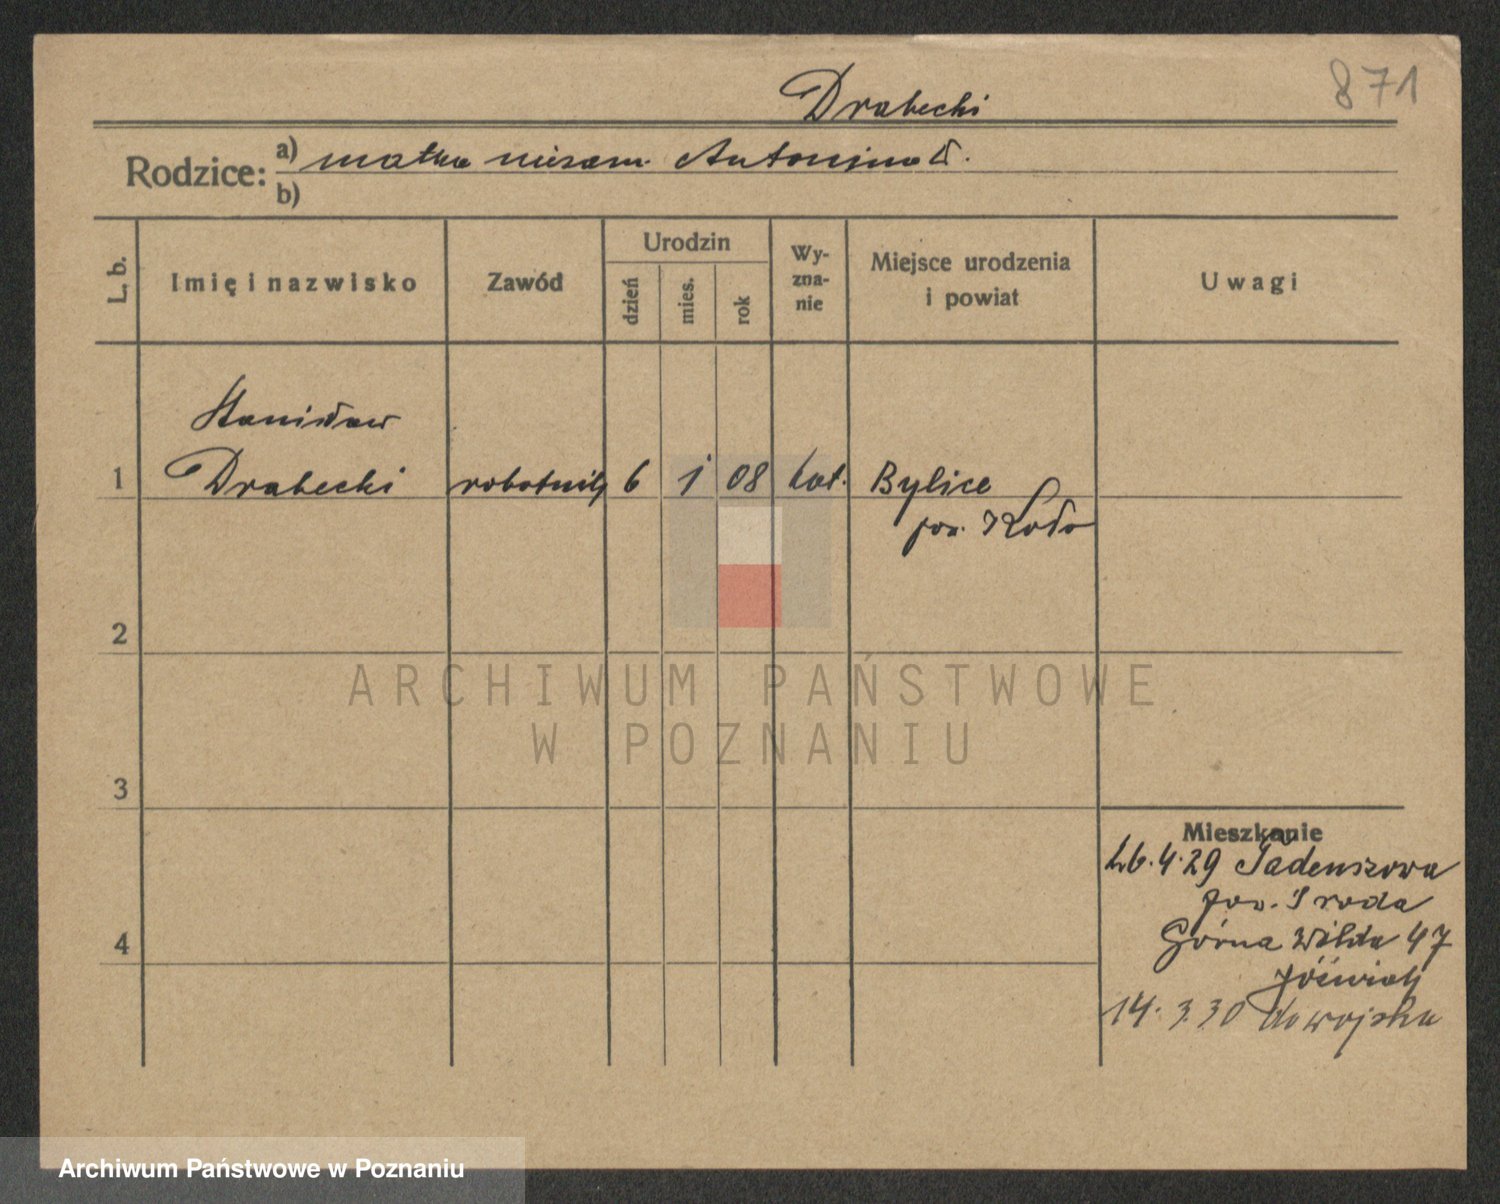 Drabecki
871
Rodzice:
a) matka niezam. Antonina D.
b)
L. b.
Imię i nazwisko
Zawód
Urodzin
dzień
mies.
rok
Wy-
zna-
nie
Miejsce urodzenia
i powiat
Uwagi
Stanisław
1 Drabecki robotnik 6 1 08 kat. Bylice
pow. Koło
2
3
4
Mieszkanie
26.4.29 Tadeuszowa
pow. Środa
Górna Wilda 47
Jóźwiak
14.3.30 do wojska
ARCHIWUM PAŃSTWOWE
W POZNANIU
Archiwum Państwowe w Poznaniu